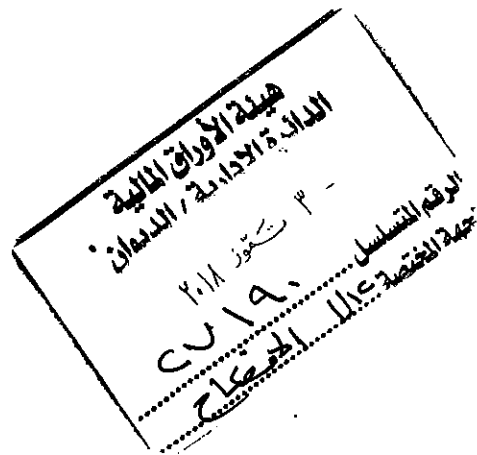 هيئة الأوراق المالية
الدائرة الادارية / الديوان
- ٣ تموز ٢٠١٨
الرقم المتسلسل ٢٧١٩٠
الجهة المختصة
الافصاح